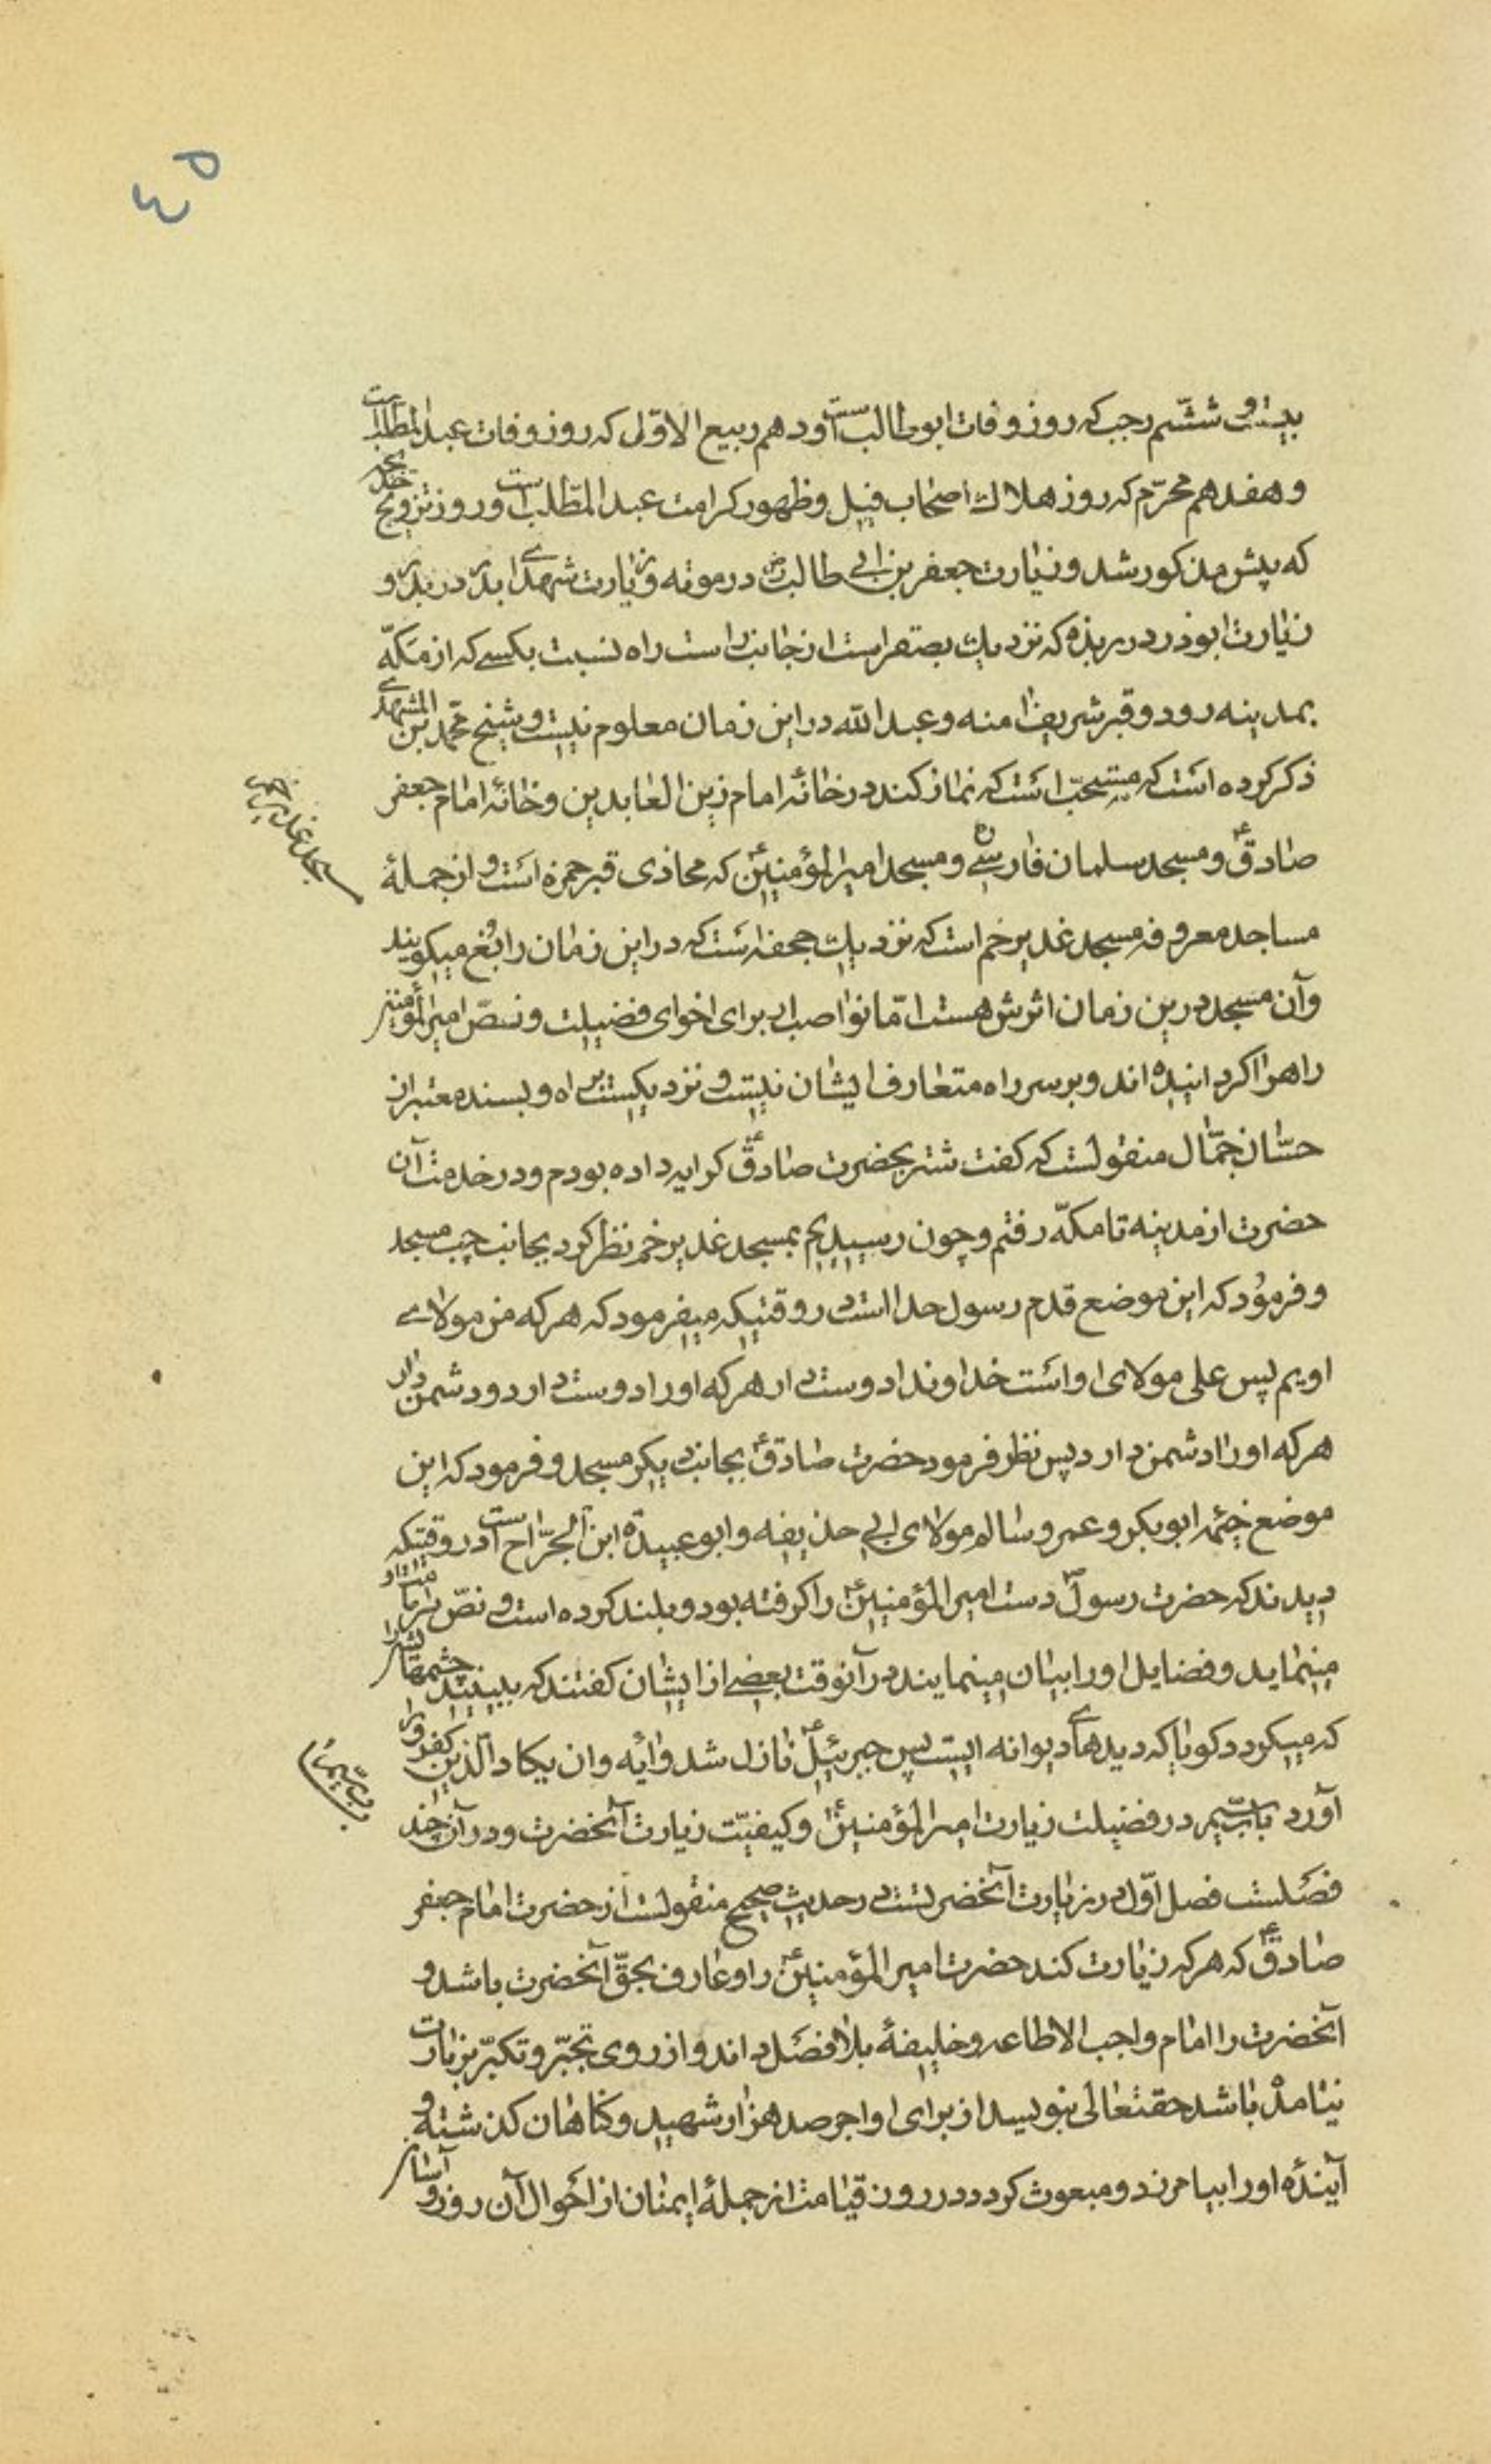 ۴۵
بیست و ششم رجب که روز وفات ابوطالب است و دهم ربیع الاوّل که روز وفات عبدالمطّلب است
و هفدهم محرّم که روز هلاك اصحاب فیل و ظهور کرامت عبدالمطّلب است و روز تزویج خدیجه
که پیش مذکور شد و زیارت جعفر بن ابی طالب رض در موته و زیارت شهدای بدر در بدر و
زیارت ابوذر در ربذه که نزدیك بصفراست از جانب راست راه نسبت بکسی که از مکّه
بمدینه رود و قبر شریف آمنه و عبدالله در این زمان معلوم نیست و شیخ محمّد بن المشهدی
ذکر کرده است که مستحبّ است که نماز کند در خانه امام زین العابدین و خانه امام جعفر
صادق ع و مسجد سلمان فارسی رض و مسجد امیرالمؤمنین ع که محاذی قبر حمزه است و از جملهٔ
مسجد غدیر خم
مساجد معروفه مسجد غدیر خم است که نزدیك جحفه است که در این زمان رابُغ میکویند
وآن مسجد درین زمان اثرش هست امّا نواصب برای اخوای فضیلت و نصّ امیرالمؤمنین
راه را کردانیده اند و بر سر راه متعارف ایشان نیست و نزدیکست براه و بسند معتبر از
حسّان جمّال منقولست که کفت شتر بحضرت صادق ع کرایه داده بودم و در خدمت آن
حضرت از مدینه تا مکّه رفتم و چون رسیدیم بمسجد غدیر خم نظر کرد بجانب چپ مسجد
و فرمود که این موضع قدم رسول خدا است در وقتیکه میفرمود که هرکه من مولای
اویم پس علی مولای او است خداوندا دوست دار هرکه او را دوست دارد و دشمن دار
هرکه او را دشمن دارد پس نظر فرمود حضرت صادق ع بجانب دیکر مسجد و فرمود که این
موضع خیمه ابوبکر و عمر و سالم مولای ابی حذیفه و ابو عبیدة ابن الجرّاح است در وقتیکه
دیدند که حضرت رسول ص دست امیرالمؤمنین ع را کرفته بود و بلند کرده است و نصّ بر امامت او
مینماید و فضایل او را بیان مینمایند در آنوقت بعضی از ایشان کفتند که ببینید چشمهایش را
که میکردد کویا که دیدهای دیوانه ایست پس جبرئیل ع نازل شد و ایه وان یکاد الّذین کفروا را
آورد باب سیّم در فضیلت زیارت امیرالمؤمنین ع و کیفیّت زیارت آنحضرت و در آن چند
باب سیّم
فصلست فصل اوّل در زیارت آنحضرتست در حدیث صحیح منقولست از حضرت امام جعفر
صادق ع که هرکه زیارت کند حضرت امیرالمؤمنین ع را و عارف بحقّ آنحضرت باشد و
آنحضرت را امام واجب الاطاعه و خلیفهٔ بلا فصل داند و از روی تجبّر و تکبّر بزیارت
نیامده باشد حقتعالی بنویسد از برای او اجر صد هزار شهید و کناهان کذشته و
آیندهٔ او را بیامرزد و مبعوث کردد در روز قیامت از جملهٔ ایمنان از احوال آن روز و آسان